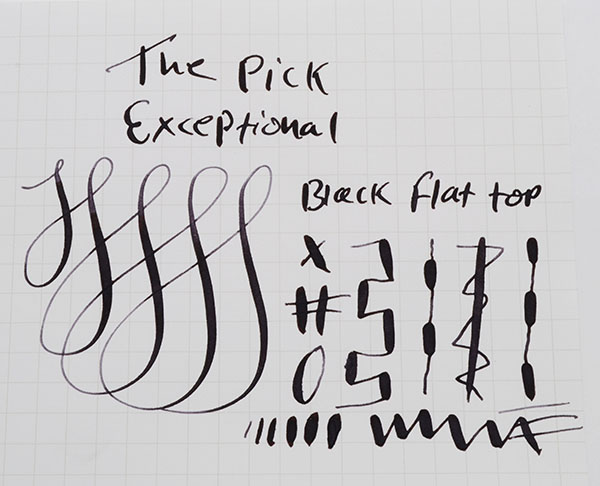 The Pick
Exceptional
Black flat top